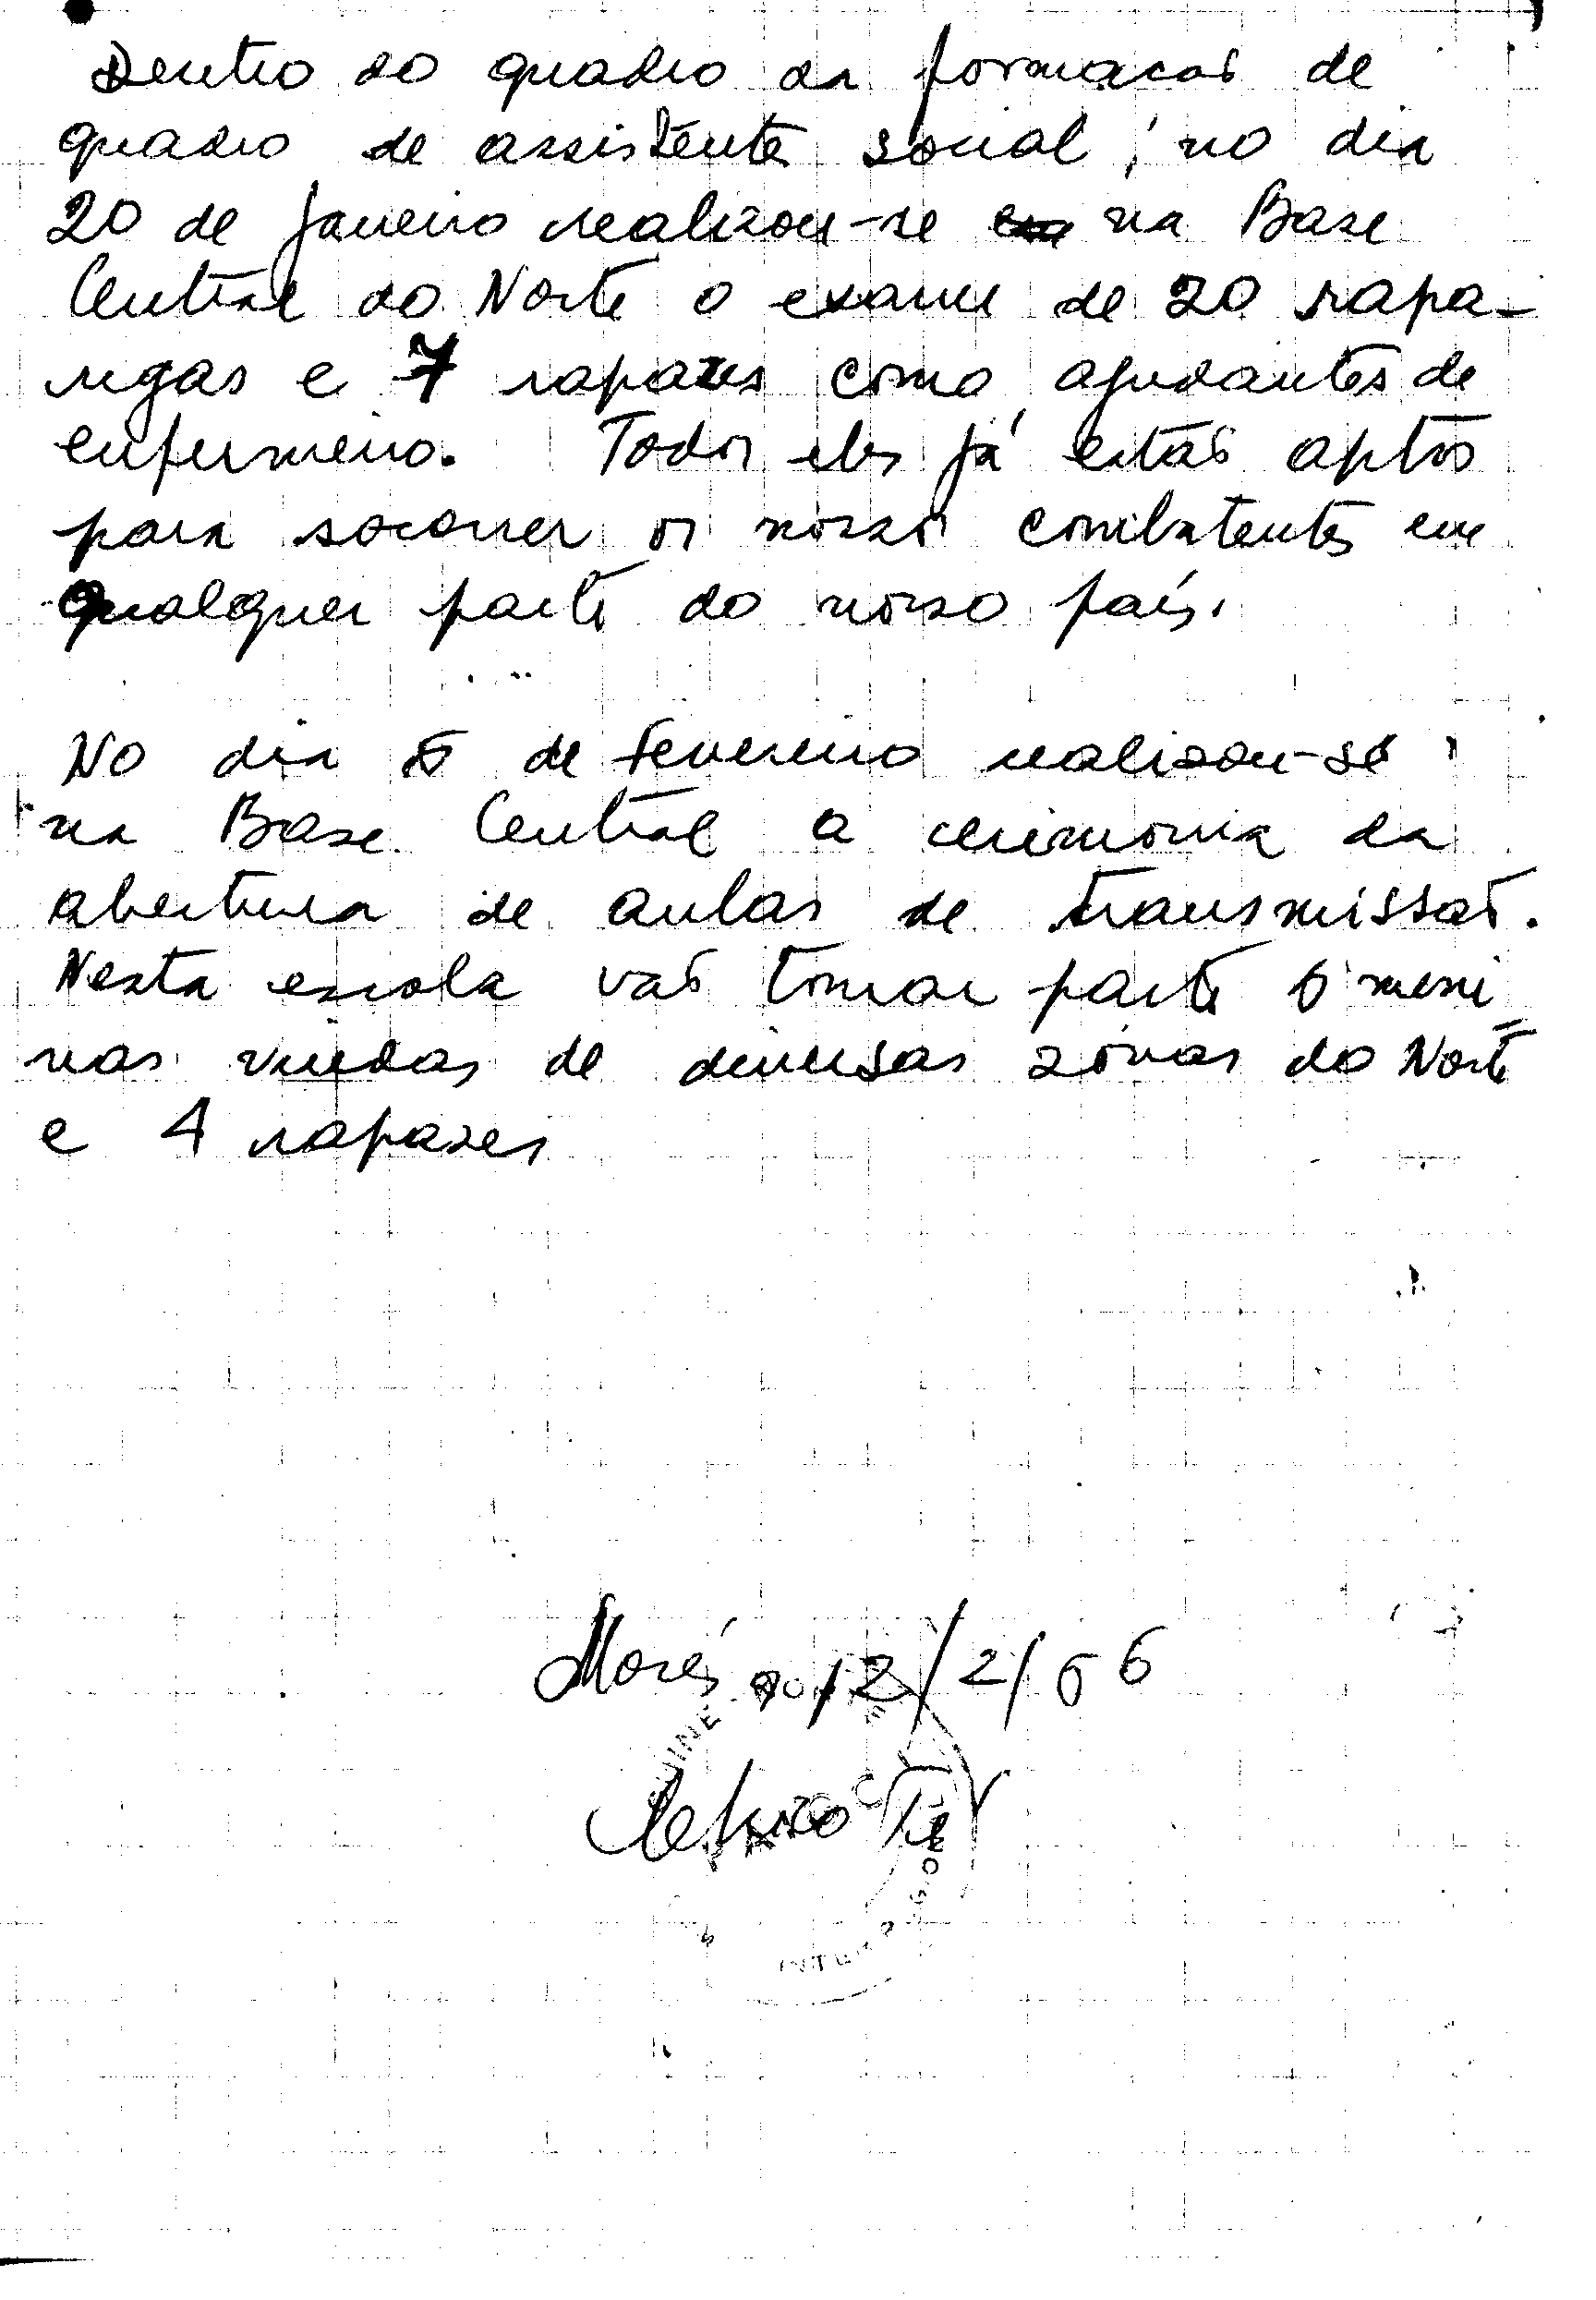 Dentro do quadro da formacaõ de
quadro de assistente social, no dia
20 de Janeiro realizou-se na Base
Central do Norte o exame de 20 rapa-
rigas e 7 rapazes como ajudantes de
enfermeiro. Todos eles já estaõ aptos
para socorrer os nossos combatentes em
qualquer parte do nosso país.
No dia de Fevereiro realizou-se
na Base Central a cerimonia da
abertura de aulas de transmissaõ.
Nesta escola vaõ tomar parte 6 meni
nas vindas de diversas zonas do Norte
e 4 rapazes
Morés 12/2/66
Té